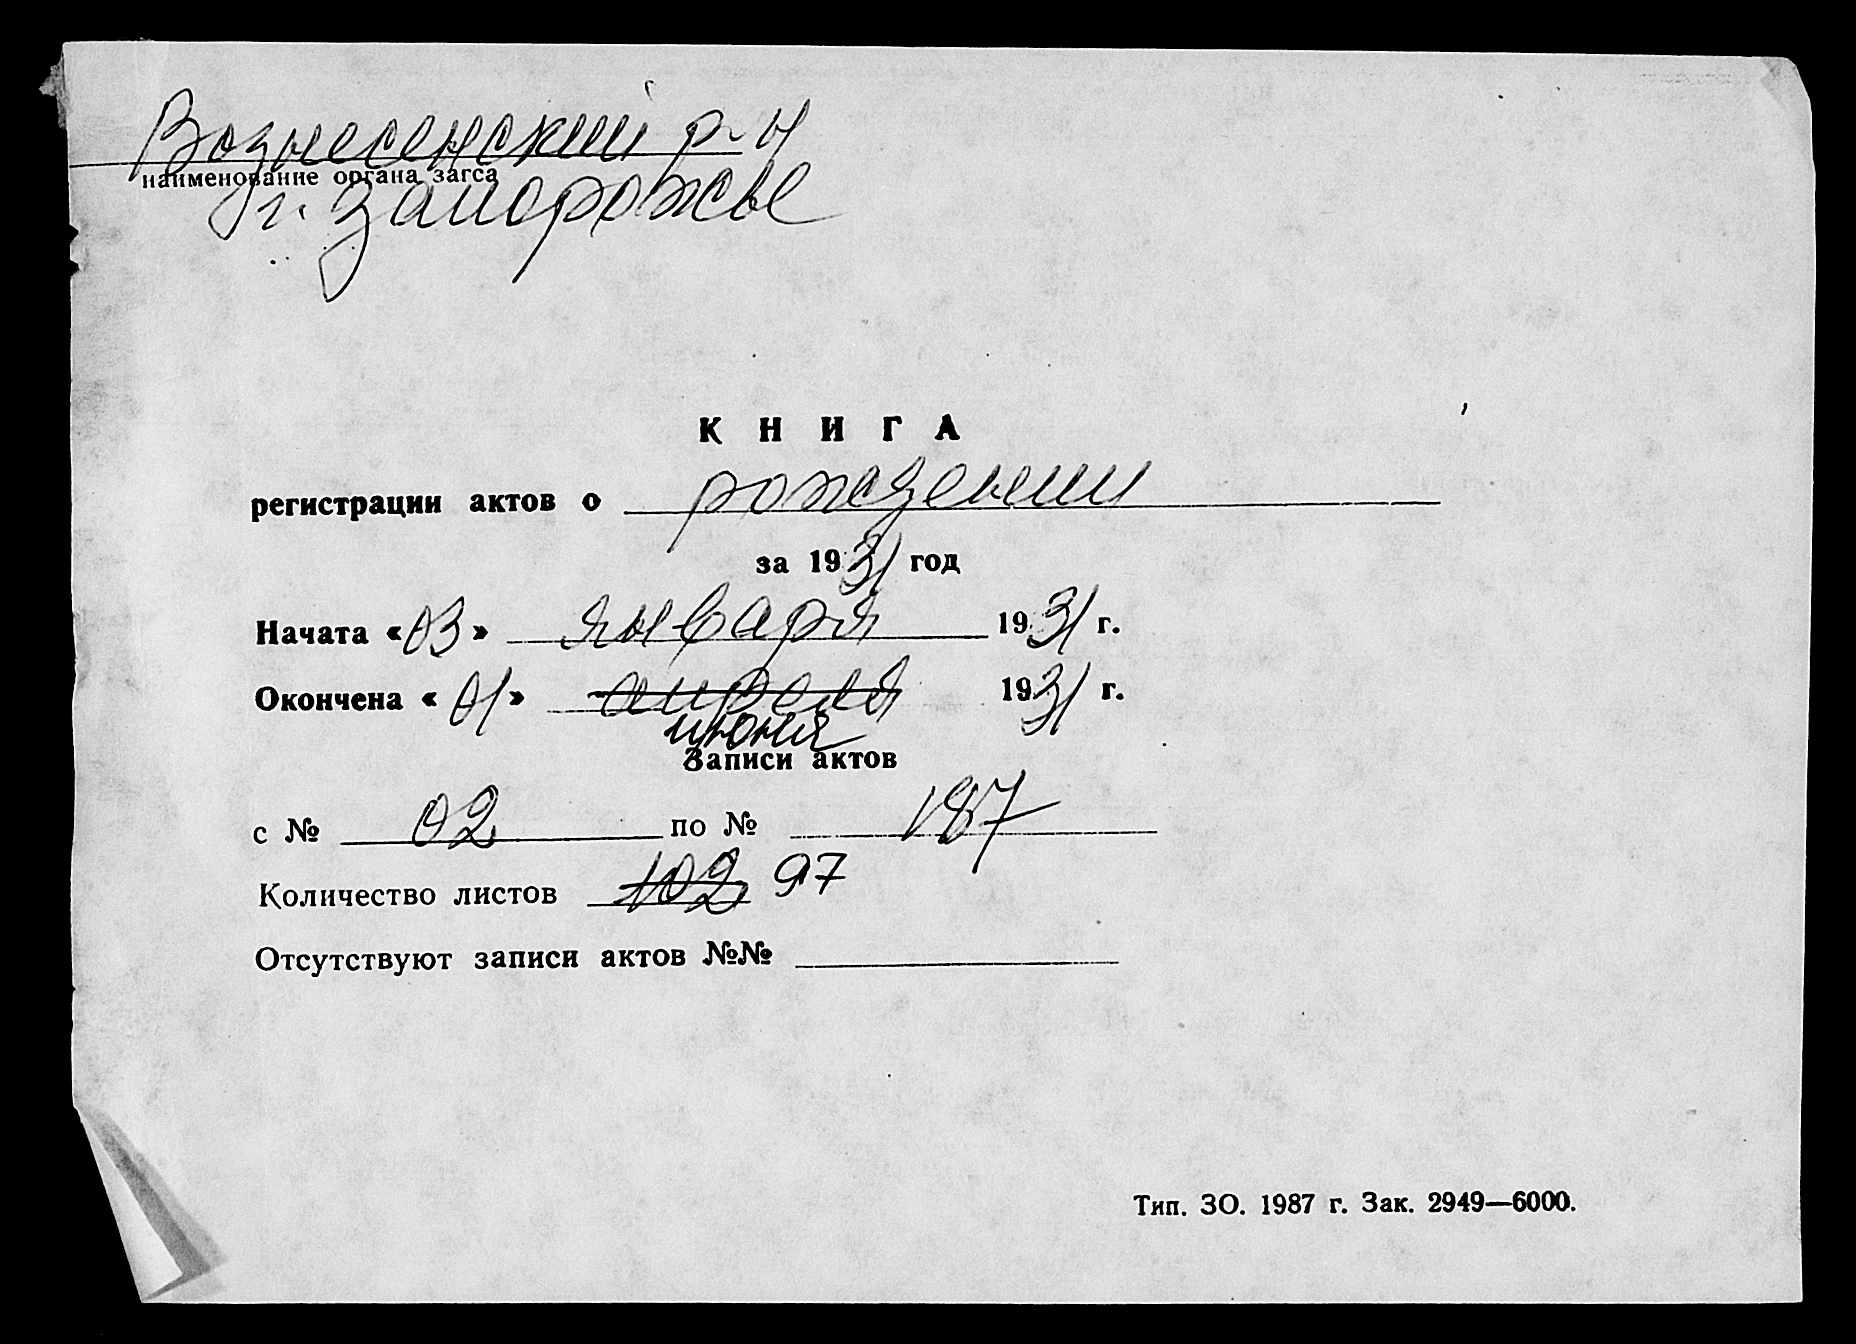 Вознесенский р-н
наименование органа загса
г. Запорожье
КНИГА
регистрации актов о рождении
за 1931 год
Начата «03» января 1931 г.
Окончена «01» апреля 1931 г.
июня
Записи актов
с № 02 по № 187
Количество листов 102 97
Отсутствуют записи актов №№
Тип. ЗО. 1987 г. Зак. 2949—6000.